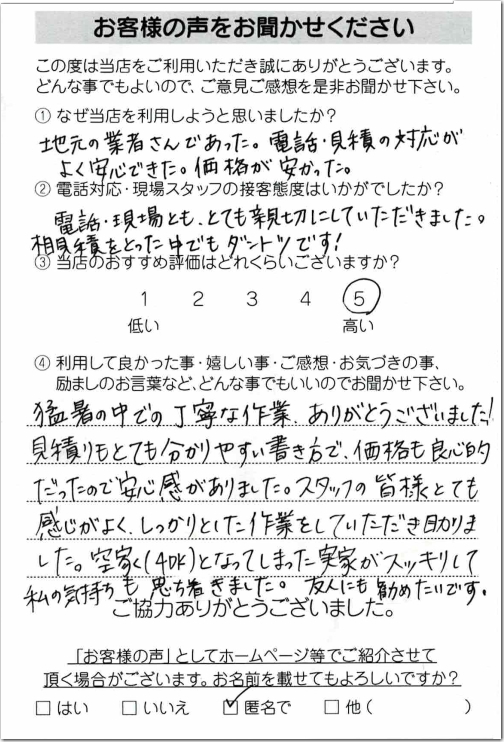 お客様の声をお聞かせください
この度は当店をご利用いただき誠にありがとうございます。
どんな事でもよいので、ご意見ご感想を是非お聞かせ下さい。
① なぜ当店を利用しようと思いましたか？
地元の業者さんであった。電話・見積の対応が
よく安心できた。価格が安かった。
② 電話対応・現場スタッフの接客態度はいかがでしたか？
電話・現場とも、とても親切にしていただきました。
相見積をとった中でもダントツです！
③ 当店のおすすめ評価はどれくらいございますか？
1 2 3 4 5
低い 高い
④ 利用して良かった事・嬉しい事・ご感想・お気づきの事、
励ましのお言葉など、どんな事でもいいのでお聞かせ下さい。
猛暑の中での丁寧な作業、ありがとうございました！
見積りもとても分かりやすい書き方で、価格も良心的
だったので安心感がありました。スタッフの皆様とても
感じがよく、しっかりとした作業をしていただき助かりま
した。空家(4DK)となってしまった実家がスッキリして
私の気持ちも落ち着きました。友人にも勧めたいです。
ご協力ありがとうございました。
「お客様の声」としてホームページ等でご紹介させて
頂く場合がございます。お名前を載せてもよろしいですか？
□ はい □ いいえ ☑ 匿名で □ 他（ ）